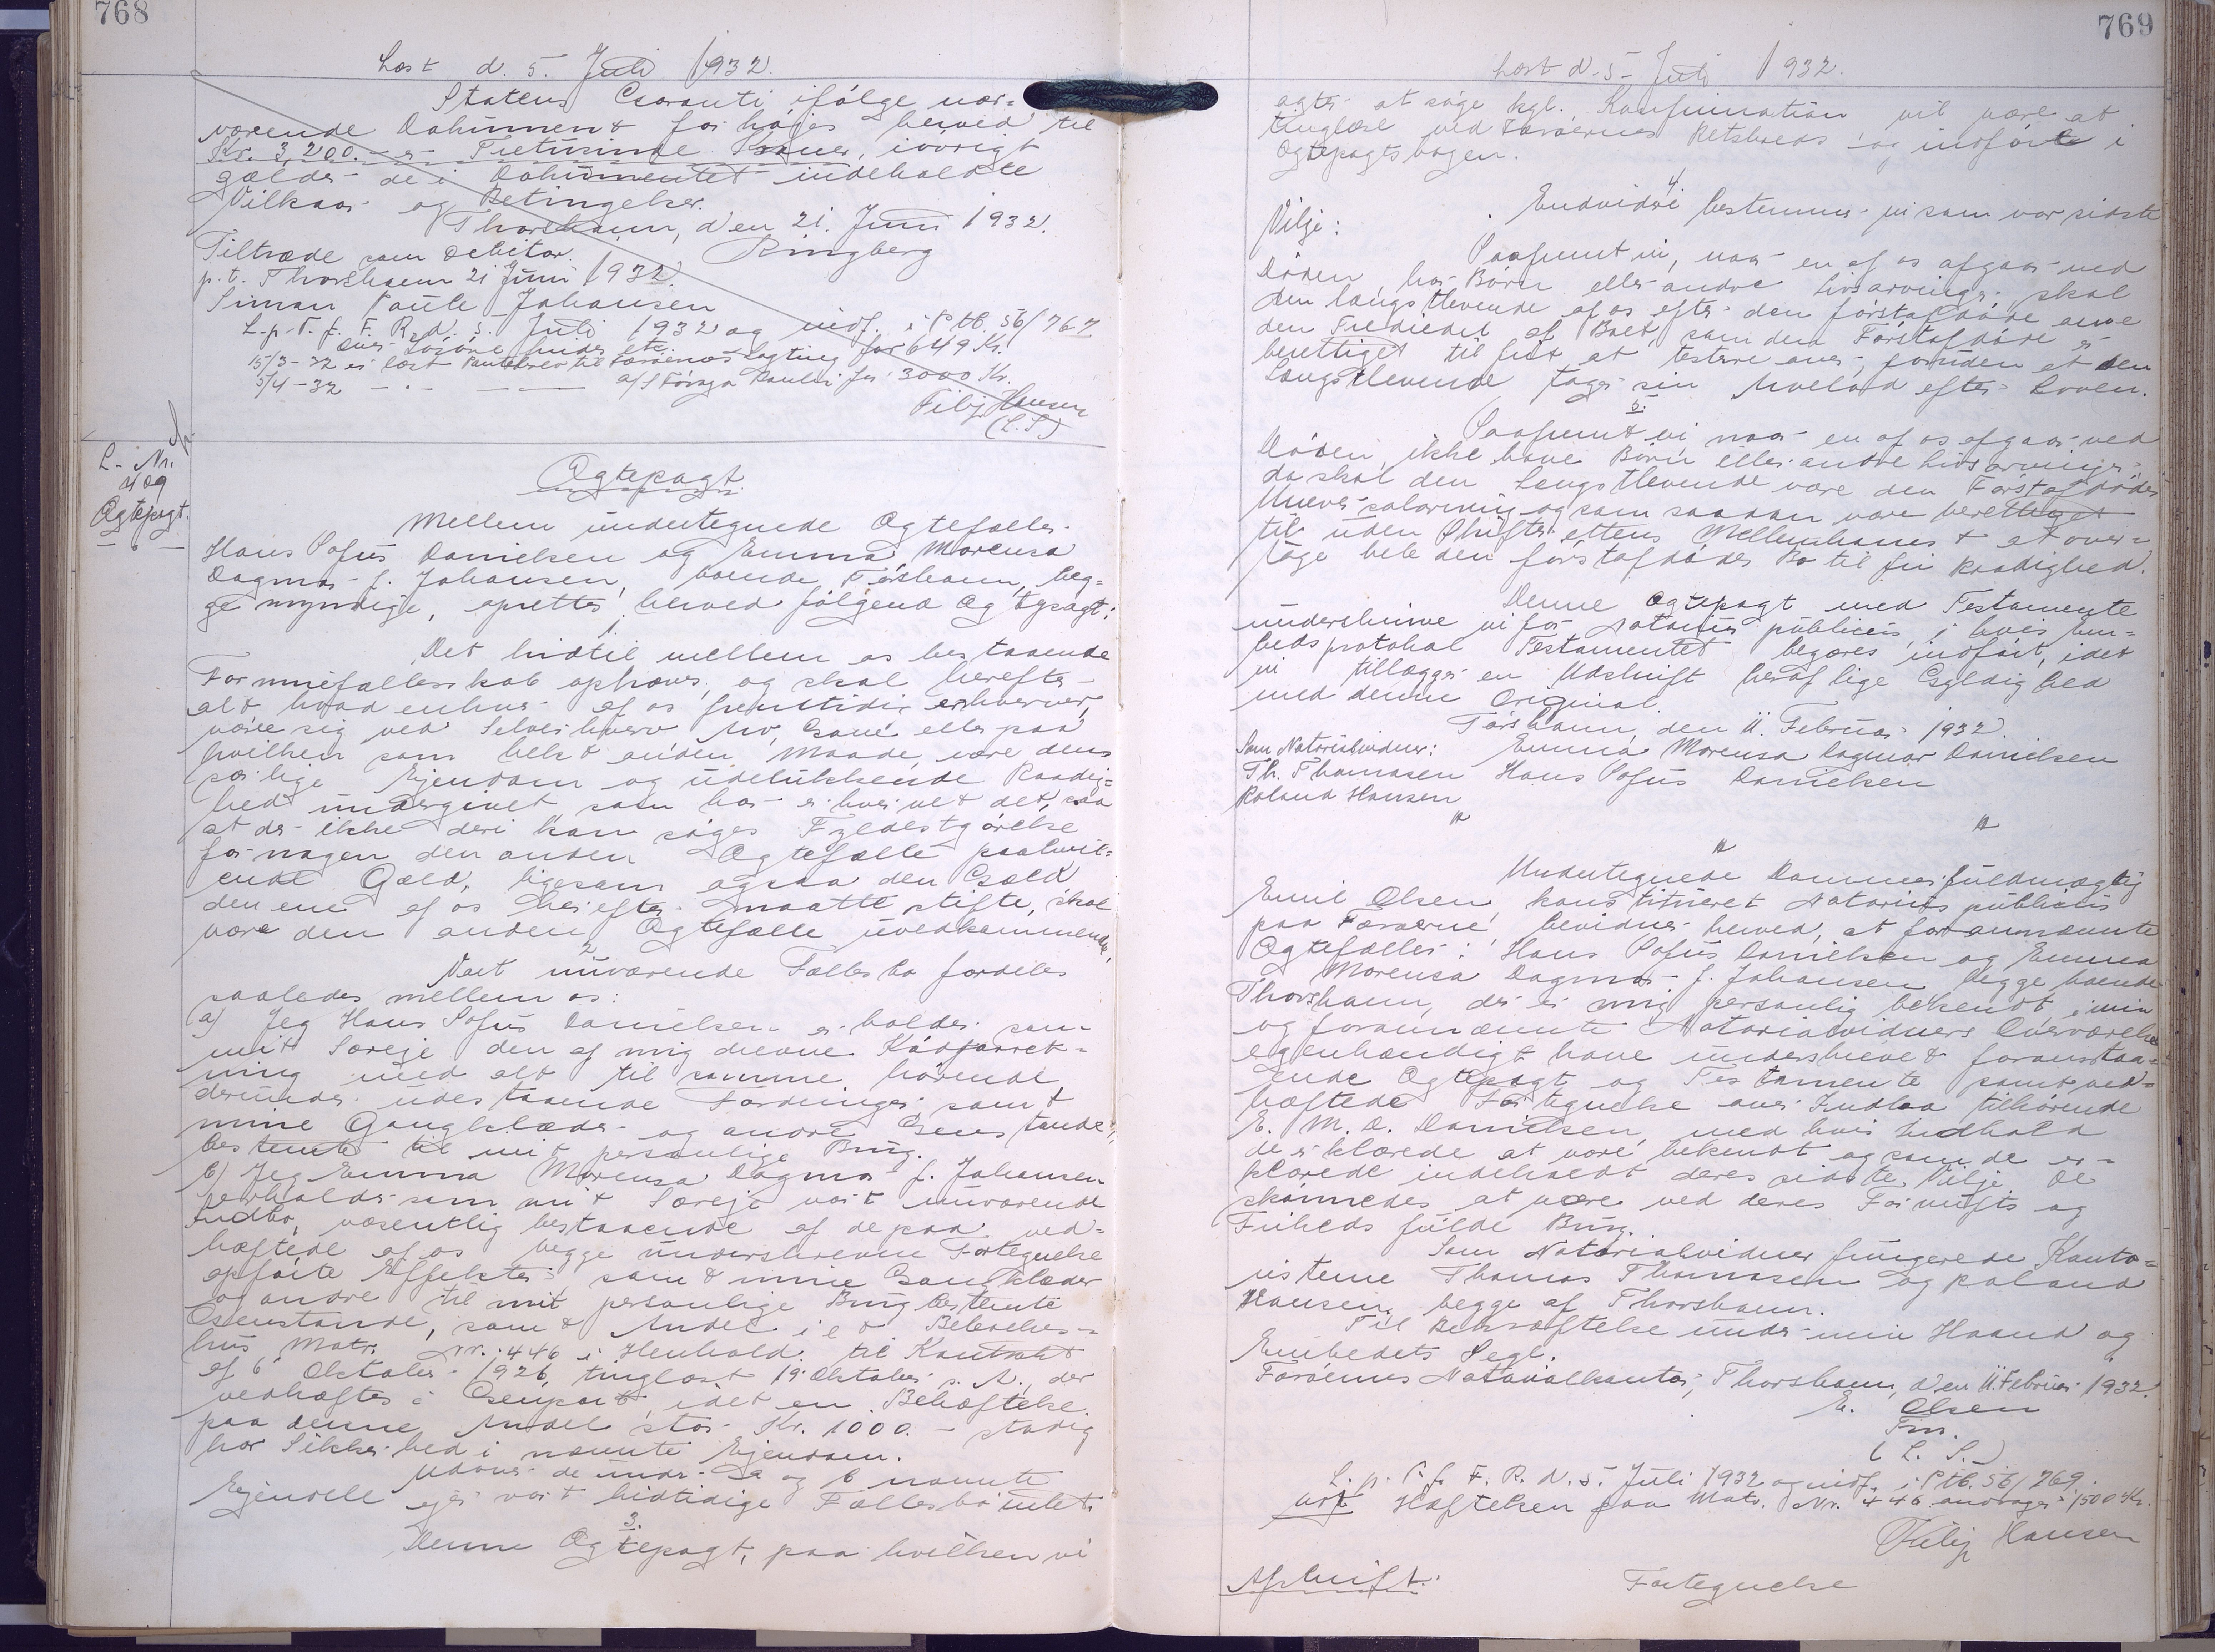 768
Læst d. 5. Juli 1932.
Statens Garanti ifölge nær-
værende Dokument forhöjes herved til
Kr. 3,200.- er Tretusinde Kroner, iövrigt
gælder de i Dokumentet indeholdte
Vilkaar og Betingelser.
Thorshavn, den 21. Juni 1932.
Ringberg
Tiltræde som Debitor.
p.t. Thorshavn 21 Juni 1932.
Simun Paule Johansen
L. p. T. f. F. R. d. 5. Juli 1932 og indf. i Ptb. 56/767
over Lösöre findes etc.
15/3-32 er læst Pantebrev til Færöernes Lagting for 649 Kr.
5/4-32 — " — — a/f Föroya Banki for 3000 Kr.
Filip Hansen
(L.S)
L. Nr.
4 og
Ægtepagt.
— 6 —
Ægtepagt.
Mellem undertegnede Ægtefæller
Hans Sofus Danielsen og Emma Morensa
Dagmar f. Johansen, boende Tórshavn, beg-
ge myndige, oprettes herved fölgende Ægtepagt:
1.
Det hidtil mellem os bestaaende
Formuefællesskab ophæves, og skal herefter
alt hvad enhver af os fremtidig erhverver,
være sig ved Selverhverv Arv, Gave eller paa
hvilken som helst anden Maade, være dens
særlige Ejendom og udelukkende Raadig-
hed undergivet, som har erhvervet det, saa
at der ikke deri kan söges Fyldestgörelse
for nogen den anden Ægtefælle paahvil-
ende Gæld, ligesom ogsaa den Gæld
den ene af os herefter maatte stifte, skal
være den anden Ægtefælle uvedkommende.
2.
Vort nuværende Fællesbo fordeles
saaledes mellem os:
a) Jeg Hans Sofus Danielsen erholder som
mit Særeje den af mig drevne Ködforret-
ning med alt til samme hörende
derunder udestaaende Fordringer samt
mine Gangklæder og andre Genstande,
bestemte til mit personlige Brug.
b) Jeg Emma Morensa Dagmar f. Johansen
erholder som mit Særeje vort nuværende
Indbo, væsentlig bestaaende af de paa ved-
hæftede af os begge underskrevne Fortegnelse
opförte Effekter samt mine Gangklæder
og andre til mit personlige Brug bestemte
Genstande, samt Andel i et Beboelses-
hus Matr. Nr. 446 i Henhold til Kontrakt
af 6 Oktober 1926, tinglæst 19 Oktober s. A., der
vedhæftes i Genpart, idet en Behæftelse
paa denne Andel stor Kr. 1000.- stadig
har Sikkerhed i nævnte Ejendom.
Udover de under a og b nævnte
Ejendele ejer vort hidtidige Fællesbo intet.
3.
Denne Ægtepagt, paa hvilken vi
769
Læst d. 5. Juli 1932.
agter at söge kgl. Konfirmation vil være at
tinglæse ved Færöernes Retskreds og indföre i
Ægtepagtsbogen.
4.
Endvidere bestemmer vi som vor sidste
Vilje:
Saafremt vi, naar en af os afgaar ved
Döden, har Börn eller andre Livsarvinger, skal
den længstlevende af os efter den förstafdöde arve
den Trediedel af Boet, som den Förstafdöde er
berettiget til frit at testere over, foruden at den
Længstlevende tager sin Arvelod efter Loven.
5.
Saafremt vi naar en af os afgaar ved
Döden, ikke have Börn eller andre Livsarvinger,
da skal den Længstlevende være den Förstafdödes
Universalarving og som saadan være berettiget
til uden Skifterettens Mellemkomst at over-
tage hele den förstafdödes Bo til fri Raadighed.
Denne Ægtepagt med Testamente
underskrive vi for Notarius publicus, i hvis Em-
bedsprotokol Testamentet begæres indfört, idet
vi tillægger en Udskrift heraf lige Gyldighed
med denne Original.
Tórshavn, den 11. Februar 1932.
Som Notarialvidner: Emma Morensa Dagmar Danielsen
Th. Thomasen Hans Sofus Danielsen
Roland Hansen
" " "
Undertegnede Dommerfuldmægtig
Emil Olsen, konstitueret Notarius publicus
paa Færöerne bevidner herved, at forannævnte
Ægtefæller: Hans Sofus Danielsen og Emma
Morensa Dagmar f. Johansen begge boende
Thorshavn, der er mig personlig bekendt, i min
og forannævnte Notarialvidners Overværelse
egenhændigt have underskrevet foranstaa-
ende Ægtepagt og Testamente samt ved-
hæftede Fortegnelse over Indbo tilhörende
E. M. D. Danielsen, med hvis Indhold
de erklærede at være bekendt og som de er-
klærede indeholdt deres sidste Vilje. De
skönnedes at være ved deres Fornufts og
Friheds fulde Brug.
Som Notarialvidner fungerede Konto-
risterne Thomas Thomasen og Roland
Hansen, begge af Thorshavn.
Til Bekræftelse under min Haand og
Embedets Segl.
Færöernes Notarialkontor, Thorshavn, den 11. Februar 1932.
E. Olsen
Fm.
(L. S.)
L. p. T. f. F. R. d. 5. Juli 1932 og indf. i Ptb. 56/769.
Hæftelsen paa Matr. Nr. 446 andrager 1500 Kr.
Filip Hansen
Afskrift. Fortegnelse